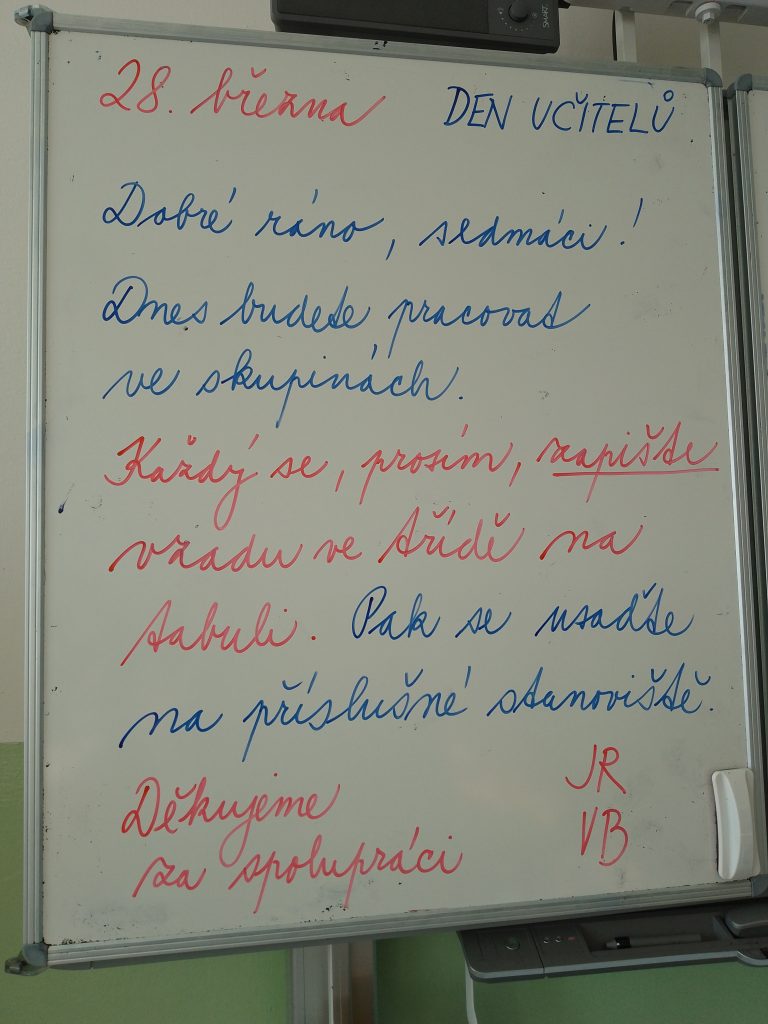 SMART
28. března DEN UČITELŮ
Dobré ráno, sedmáci!
Dnes budete pracovat
ve skupinách.
Každý se, prosím, zapište
vzadu ve třídě na
tabuli. Pak se usaďte
na příslušné stanoviště.
Děkujeme JR
za spolupráci VB